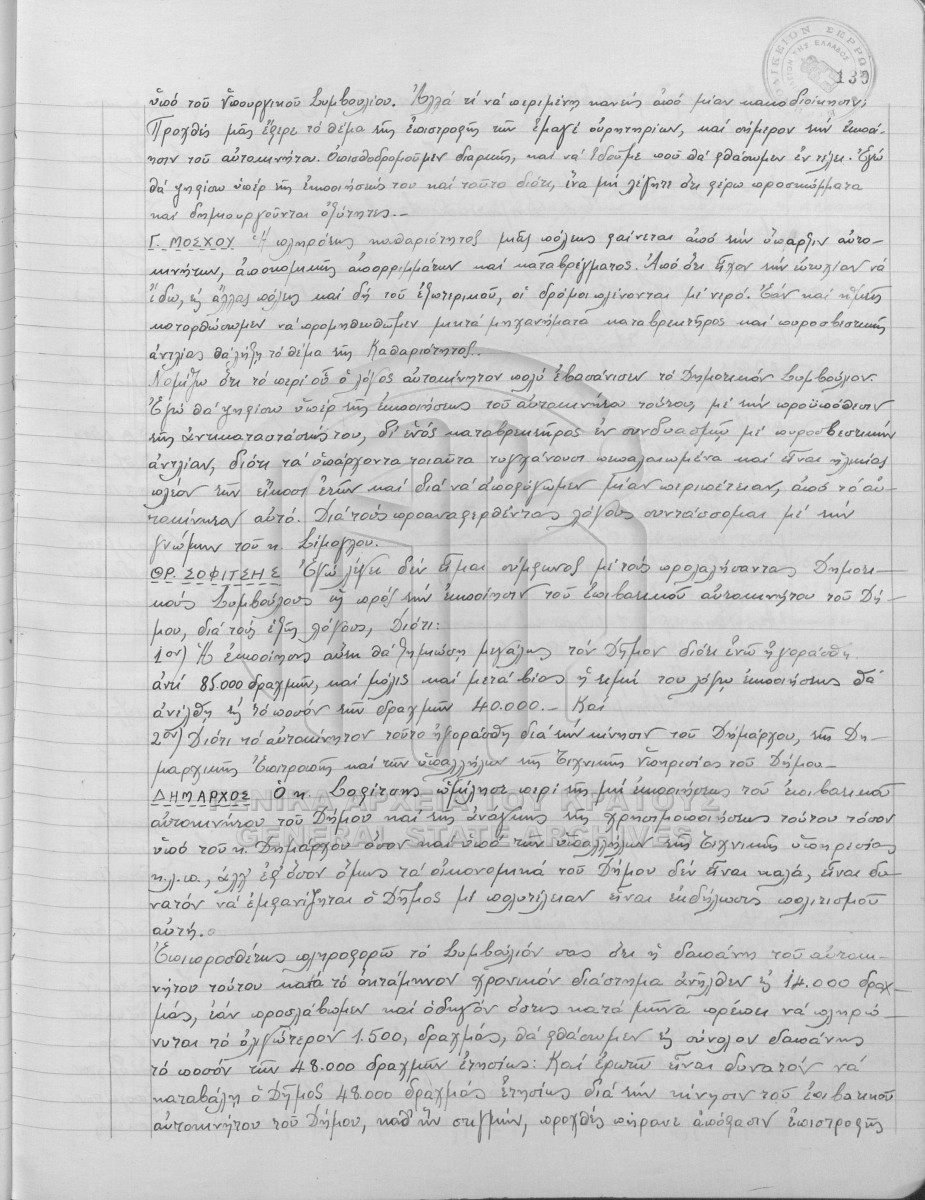 135
ὑπό τοῦ Ὑπουργικοῦ Συμβουλίου. Ἀλλά τί νά περιμένη κανείς ἀπό μίαν κακοδιοίκησιν;
Προχθές μᾶς ἔφερε τό θέμα τῆς ἐπιστροφῆς τῶν ἐμαγέ οὐρητηρίων, καί σήμερον τήν ἐκποί-
ησιν τοῦ αὐτοκινήτου. Ὀπισθοδρομοῦμεν διαρκῶς, καί νά ἰδοῦμε ποῦ θά φθάσωμεν ἐν τέλει. Ἐγώ
θά ψηφίσω ὑπέρ τῆς ἐκποιήσεώς του καί τοῦτο διότι, ἵνα μή λέγητε ὅτι φέρω προσκόμματα
καί δημιουργοῦνται ὀξύτητες.—
Γ. ΜΟΣΧΟΥ Ἡ πληρότης καθαριότητος μιᾶς πόλεως φαίνεται ἀπό τήν ὕπαρξιν αὐτο-
κινήτων, ἀποκομιδῆς ἀπορριμμάτων καί καταβρέγματος. Ἀπό ὅτι εἶχον τήν εὐτυχίαν νά
ἴδω, εἰς ἄλλας πόλεις καί δή τοῦ ἐξωτερικοῦ, οἱ δρόμοι πλένονται μέ νερό. Ἐάν καί ἡμεῖς
κατορθώσωμεν νά προμηθευθῶμεν μικτά μηχανήματα καταβρεκτῆρος καί πυροσβεστικῆς
ἀντλίας θά λήξη τό θέμα τῆς Καθαριότητος.
Νομίζω ὅτι τό περί οὗ ὁ λόγος αὐτοκίνητον πολύ ἐβασάνισεν τό Δημοτικόν Συμβούλιον.
Ἐγώ θά ψηφίσω ὑπέρ τῆς ἐκποιήσεως τοῦ αὐτοκινήτου τούτου, μέ τήν προϋπόθεσιν
τῆς ἀντικαταστάσεώς του, δι' ἑνός καταβρεκτῆρος ἐν συνδυασμῷ μέ πυροσβεστικήν
ἀντλίαν, διότι τά ὑπάρχοντα τοιαῦτα τυγχάνουσι πεπαλαιωμένα καί εἶναι ἡλικίας
πλέον τῶν εἴκοσι ἐτῶν καί διά νά ἀποφύγωμεν μίαν περιπέτειαν, ἀπό τό αὐ-
τοκίνητον αὐτό. Διά τούς προαναφερθέντας λόγους συντάσσομαι μέ τήν
γνώμην τοῦ κ. Σίμογλου.
ΘΡ. ΣΟΦΙΤΣΗΣ Ἐγώ λέγω δέν εἶμαι σύμφωνος μέ τούς προλαλήσαντας Δημοτι-
κούς Συμβούλους ὡς πρός τήν ἐκποίησιν τοῦ ἐπιβατικοῦ αὐτοκινήτου τοῦ Δή-
μου, διά τούς ἑξῆς λόγους, Διότι:
1ον) Ἡ ἐκποίησις αὕτη θά ζημιώση μεγάλως τόν Δῆμον διότι ἐνῶ ἠγοράσθη
ἀντί 85.000 δραχμῶν, καί μόλις καί μετά βίας ἡ τιμή του λόγῳ ἐκποιήσεως θά
ἀνέλθη εἰς τό ποσόν τῶν δραχμῶν 40.000.— Καί
2ον) Διότι τό αὐτοκίνητον τοῦτο ἠγοράσθη διά τήν κίνησιν τοῦ Δημάρχου, τῆς Δη-
μαρχικῆς Ἐπιτροπῆς καί τῶν ὑπαλλήλων τῆς Τεχνικῆς Ὑπηρεσίας τοῦ Δήμου.—
ΔΗΜΑΡΧΟΣ Ὁ κ. Σοφίτσης ὡμίλησε περί τῆς μή ἐκποιήσεως τοῦ ἐπιβατικοῦ
αὐτοκινήτου τοῦ Δήμου καί τῆς ἀνάγκης τῆς χρησιμοποιήσεως τούτου τόσον
ὑπό τοῦ κ. Δημάρχου ὅσον καί ὑπό τῶν ὑπαλλήλων τῆς Τεχνικῆς ὑπηρεσίας
κ.λ.π., ἀλλ' ἐφ' ὅσον ὅμως τά οἰκονομικά τοῦ Δήμου δέν εἶναι καλά, εἶναι δυ-
νατόν νά ἐμφανίζηται ὁ Δῆμος μέ πολυτέλειαν εἶναι ἐκδήλωσις πολιτισμοῦ
αὐτή.
Ἐπιπροσθέτως πληροφορῶ τό Συμβούλιόν σας ὅτι ἡ δαπάνη τοῦ αὐτοκι-
νήτου τούτου κατά τό ὀκτάμηνον χρονικόν διάστημα ἀνῆλθεν εἰς 14.000 δραχ-
μάς, ἐάν προσλάβωμεν καί ὁδηγόν ὅστις κατά μῆνα πρέπει νά πληρώ-
νεται τό ὀλιγώτερον 1.500, δραχμάς, θά φθάσωμεν εἰς σύνολον δαπάνης
τό ποσόν τῶν 48.000 δραχμῶν ἐτησίως: Καί ἐρωτῶ εἶναι δυνατόν νά
καταβάλη ὁ Δῆμος 48.000 δραχμάς ἐτησίως διά τήν κίνησιν τοῦ ἐπιβατικοῦ
αὐτοκινήτου τοῦ Δήμου, καθ' ἥν στιγμήν, προχθές πήραμε ἀπόφασιν ἐπιστροφῆς
ΓΕΝΙΚΑ ΑΡΧΕΙΑ ΤΟΥ ΚΡΑΤΟΥΣ
GENERAL STATE ARCHIVES